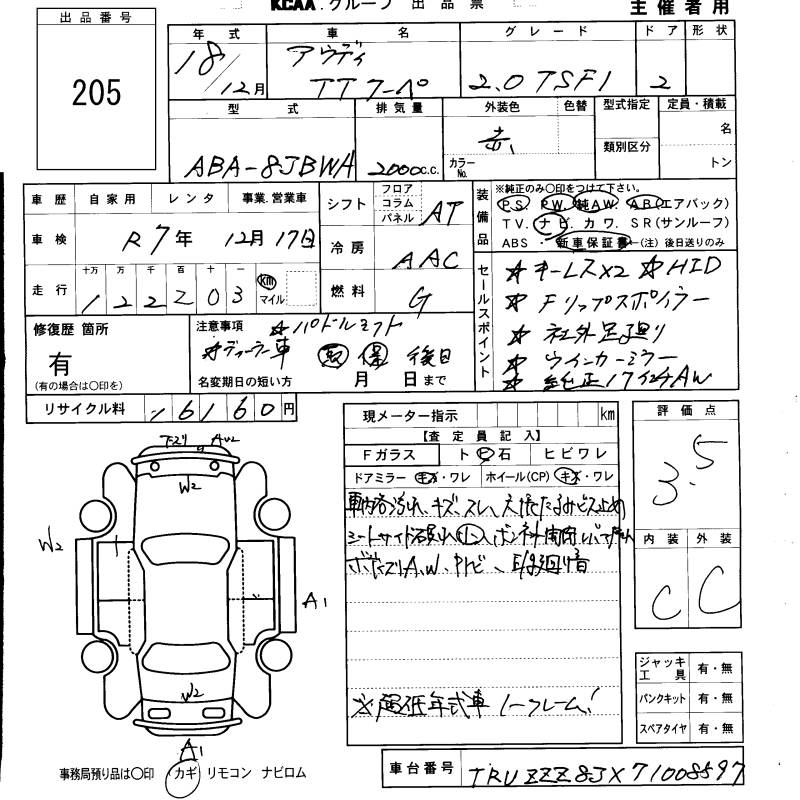 KCAA. グループ 出品票
主催者用
出品番号
205
年式 車名 グレード ドア 形状
18/12月 アウディ TTクーペ 2.0TSFI 2
型式 排気量 外装色 色替 型式指定 定員・積載
ABA-8JBWA 2000c.c. 赤 カラーNo. 類別区分 名 トン
車歴 自家用 レンタ 事業.営業車
車検 R7年 12月17日
走行 十万 万 千 百 十 一 km マイル
122203
シフト フロア コラム パネル AT
冷房 AAC
燃料 G
装備品 ※純正のみ〇印をつけて下さい。
P.S. P.W. 純A.W. A.B.(エアバック)
T.V. ナビ. カワ. S R (サンルーフ)
ABS ・ 新車保証書 (注) 後日送りのみ
セールスポイント
☆キーレス×2 ☆HID
☆Fリップスポイラー
☆社外足廻り
☆ウインカーミラー
☆純正17インチAW
修復歴 箇所
有
(有の場合は〇印を)
注意事項 ☆パドルシフト
☆ディーラー車 取 保 後日
名変期日の短い方 月 日まで
リサイクル料 16160円
現メーター指示 km
【査定員記入】
Fガラス ト ヒ 石 ヒビワレ
ドアミラー キズ・ワレ ホイール(CP) キズ・ワレ
車内汚れ、キズ、スレ、天張たるみビス止め
ボンネット
A.W.
※超低年式車
評価点
3.5
内装 外装
C C
ジャッキ工具 有・無
パンクキット 有・無
スペアタイヤ 有・無
W2
W2
A1
W2
A1
事務局預り品は〇印 カギ リモコン ナビロム
車台番号 TRUZZZ8JX71008597